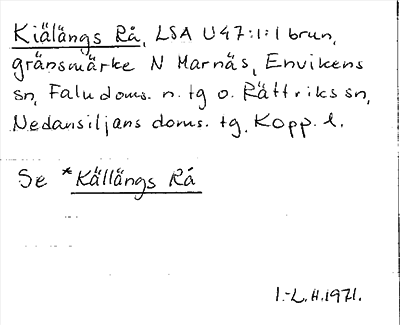 Kiälängs Rå, LSA U47:1:1 brun,
gränsmärke N Marnäs, Envikens
sn, Falu doms. n. tg o. Rättviks sn,
Nedansiljans doms. tg, Kopp. l.
Se *Källängs Rå
I.-L.H. 1971.